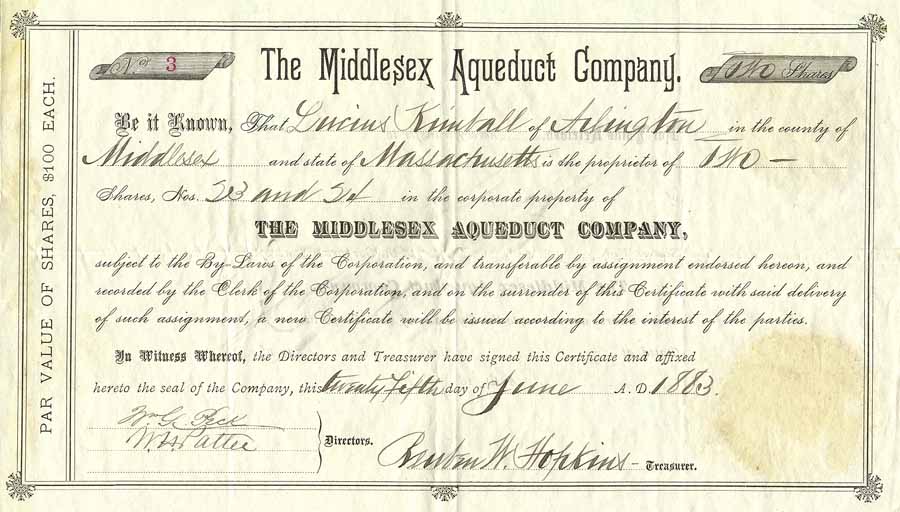 PAR VALUE OF SHARES, $100 EACH.
No. 3
The Middlesex Aqueduct Company.
Two Shares
Be it Known, That Lucius Kimball of Arlington in the county of
Middlesex and state of Massachusetts is the proprietor of Two —
Shares, Nos. 23 and 24 in the corporate property of
THE MIDDLESEX AQUEDUCT COMPANY,
subject to the By-Laws of the Corporation, and transferable by assignment endorsed hereon, and
recorded by the Clerk of the Corporation, and on the surrender of this Certificate with said delivery
of such assignment, a new Certificate will be issued according to the interest of the parties.
In Witness Whereof, the Directors and Treasurer have signed this Certificate and affixed
hereto the seal of the Company, this twenty fifth day of June A. D. 1883.
Wm G. Peck
W. H. Pattee
Directors.
Reuben W. Hopkins - Treasurer.